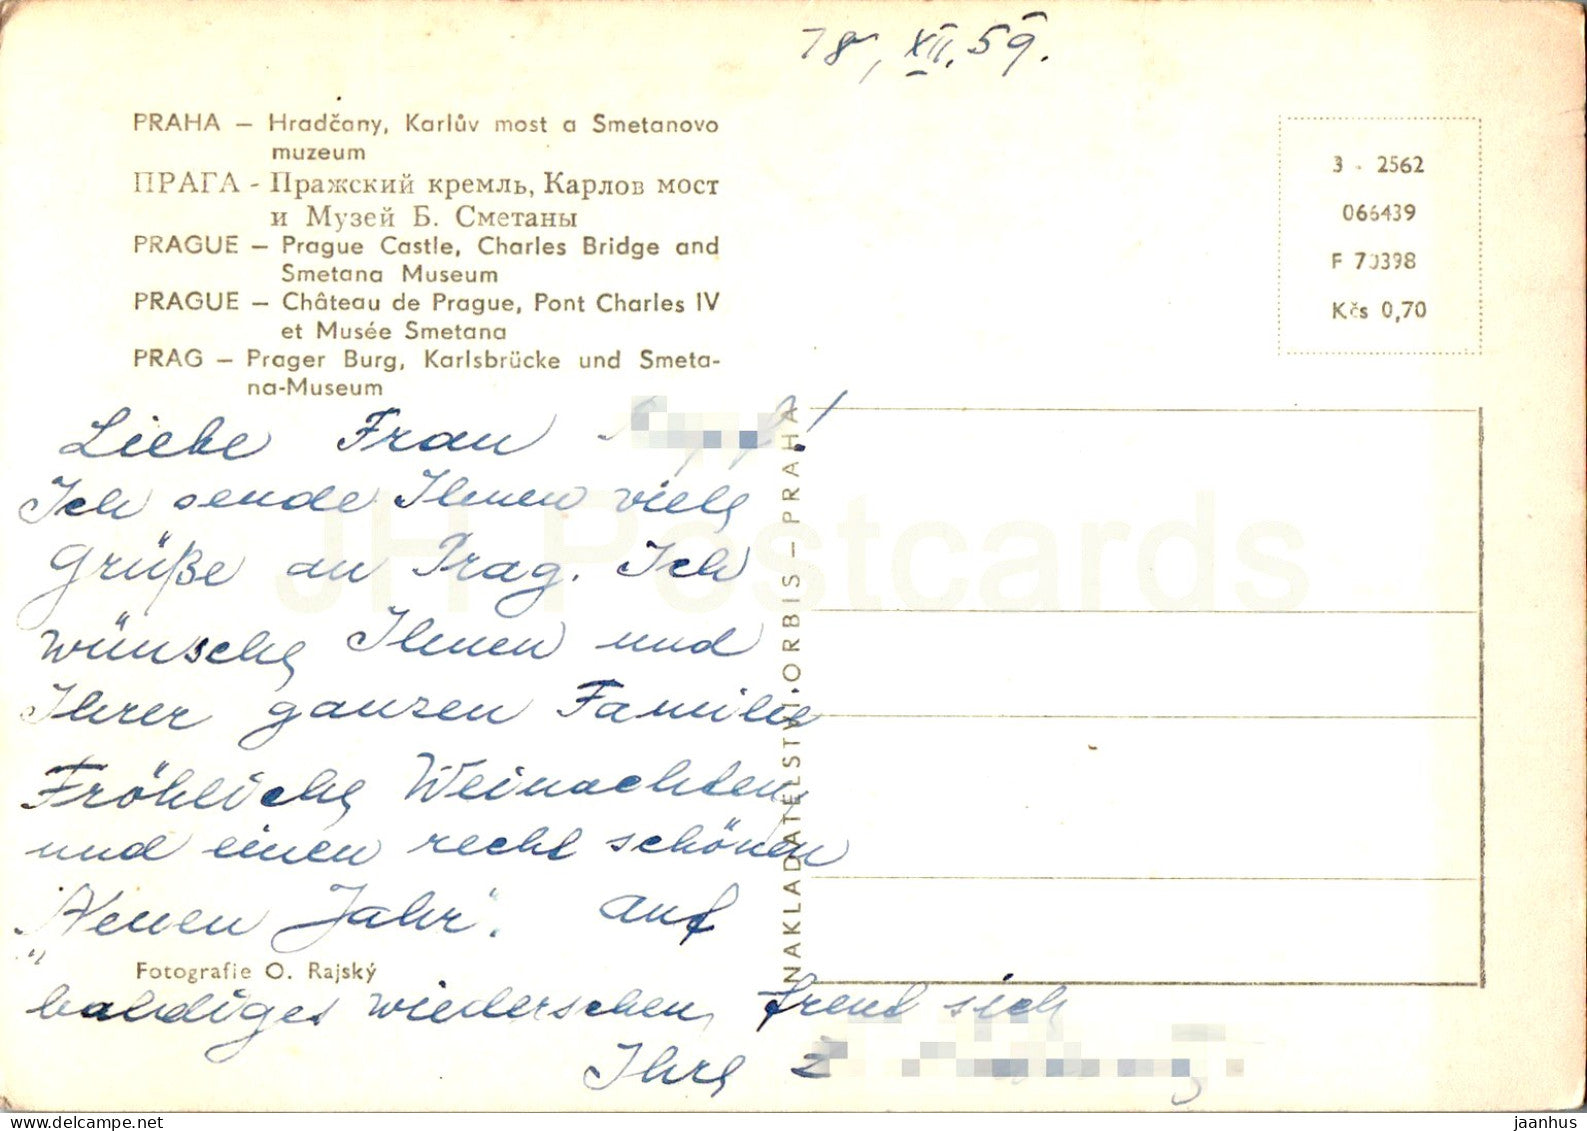 18, XII. 59.
PRAHA – Hradčany, Karlův most a Smetanovo
muzeum
ПРАГА - Пражский кремль, Карлов мост
и Музей Б. Сметаны
PRAGUE – Prague Castle, Charles Bridge and
Smetana Museum
PRAGUE – Château de Prague, Pont Charles IV
et Musée Smetana
PRAG – Prager Burg, Karlsbrücke und Smeta-
na-Museum
3 - 2562
066439
F 70398
Kčs 0,70
Liebe Frau
Ich sende Ihnen viele
Grüße an Prag. Ich
wünsche Ihnen und
Ihrer ganzen Familie
Fröhliche Weinachten
und einen recht schönen
"Neuen Jahr". Auf
Fotografie O. Rajský
baldiges wiedersehen, freut sich
Ihre
NAKLADATELSTVÍ ORBIS – PRAHA
JH Postcards
www.delcampe.net
jaanhus